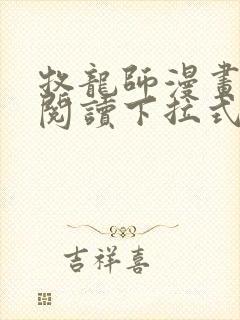 牧龍師漫畫
閱讀下拉式
吉祥喜